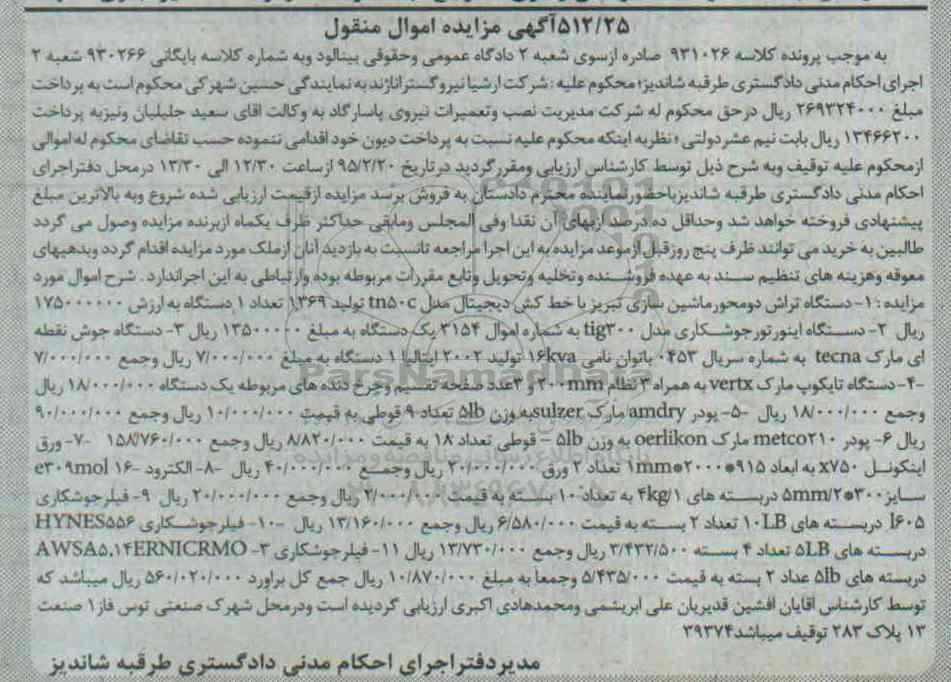 ۵۱۲/۲۵آگهی مزایده اموال منقول
به موجب پرونده کلاسه ۹۳۱۰۲۶ صادره ازسوی شعبه ۲ دادگاه عمومی وحقوقی بینالود وبه شماره کلاسه بایگانی ۹۳۰۲۶۶ شعبه ۲
اجرای احکام مدنی دادگستری طرقبه شاندیز؛ محکوم علیه : شرکت ارشیا نیرو گستر اناژند به نمایندگی حسین شهرکی محکوم است به پرداخت
مبلغ ۲۶۹۳۲۴۰۰۰ ریال درحق محکوم له شرکت مدیریت نصب وتعمیرات نیروی پاسارگاد به وکالت اقای سعید جلیلیان ونیزبه پرداخت
۱۳۴۶۶۲۰۰ ریال بابت نیم عشر دولتی ؛ نظربه اینکه محکوم علیه نسبت به پرداخت دیون خود اقدامی ننموده حسب تقاضای محکوم له اموالی
ازمحکوم علیه توقیف وبه شرح ذیل توسط کارشناس ارزیابی ومقرر گردید درتاریخ ۹۵/۲/۲۰ ازساعت ۱۲/۳۰ الی ۱۳/۳۰ درمحل دفتراجرای
احکام مدنی دادگستری طرقبه شاندیزباحضورنماینده محترم دادستان به فروش برسد مزایده ازقیمت ارزیابی شده شروع وبه بالاترین مبلغ
پیشنهادی فروخته خواهد شد وحداقل ده درصد ازبهای آن نقدا وفی المجلس ومابقی حداکثر ظرف یکماه ازبرنده مزایده وصول می گردد
طالبین به خرید می توانند ظرف پنج روزقبل ازموعد مزایده به این اجرا مراجعه تانسبت به بازدید آنان ازملک مورد مزایده اقدام گردد وبدهیهای
معوقه وهزینه های تنظیم سند به عهده فروشنده وتخلیه وتحویل وتابع مقررات مربوطه بوده وارتباطی به این اجراندارد . شرح اموال مورد
مزایده : ۱- دستگاه تراش دومحورماشین سازی تبریز با خط کش دیجیتال مدل tn۵۰c تولید ۱۳۶۹ تعداد ۱ دستگاه به ارزش ۱۷۵۰۰۰۰۰۰
ریال ۲- دستگاه اینورتورجوشکاری مدل tig۳۰۰ به شماره اموال ۳۱۵۴ یک دستگاه به مبلغ ۱۳۵۰۰۰۰۰ ریال ۳- دستگاه جوش نقطه
ای مارک tecna به شماره سریال ۰۴۵۳ باتوان نامی ۱۶kva تولید ۲۰۰۲ ایتالیا ۱ دستگاه به مبلغ ۷/۰۰۰/۰۰۰ ریال وجمع ۷/۰۰۰/۰۰۰
-۴- دستگاه تایکوپ مارک vertx به همراه ۳ نظام ۲۰۰mm و ۳عدد صفحه تقسیم وچرخ دنده های مربوطه یک دستگاه ۱۸/۰۰۰/۰۰۰ ریال
وجمع ۱۸/۰۰۰/۰۰۰ ریال -۵- پودر amdry مارک sulzerبه وزن ۵lb تعداد ۹ قوطی به قیمت ۱۰/۰۰۰/۰۰۰ ریال وجمع ۹۰/۰۰۰/۰۰۰
ریال ۶- پودر metco۲۱۰ مارک oerlikon به وزن ۵lb - قوطی تعداد ۱۸ به قیمت ۸/۸۲۰/۰۰۰ ریال وجمع ۱۵۸/۷۶۰/۰۰۰ -۷- ورق
اینکونل x۷۵۰ به ابعاد ۹۱۵*۲۰۰۰*۱mm تعداد ۲ ورق ۲۰/۰۰۰/۰۰۰ ریال وجمع ۴۰/۰۰۰/۰۰۰ ریال -۸- الکترود e۳۰۹mol ۱۶-
سایز ۳۰۰*۵mm/۲ دربسته های ۴kg/۱ به تعداد ۱۰ بسته به قیمت ۲/۰۰۰/۰۰۰ ریال وجمع ۲۰/۰۰۰/۰۰۰ ریال ۹- فیلرجوشکاری
I۶۰۵ دربسته های ۱۰LB تعداد ۲ بسته به قیمت ۶/۵۸۰/۰۰۰ ریال وجمع ۱۳/۱۶۰/۰۰۰ ریال -۱۰- فیلرجوشکاری HYNES۵۵۶
دربسته های ۵LB تعداد ۴ بسته ۳/۴۳۲/۵۰۰ ریال وجمع ۱۳/۷۳۰/۰۰۰ ریال ۱۱- فیلرجوشکاری AWSA۵.۱۴ERNICRMO -۳
دربسته های ۵lb عداد ۲ بسته به قیمت ۵/۴۳۵/۰۰۰ وجمعا به مبلغ ۱۰/۸۷۰/۰۰۰ ریال جمع کل براورد ۵۶۰/۰۲۰/۰۰۰ ریال میباشد که
توسط کارشناس اقایان افشین قدیریان علی ابریشمی ومحمدهادی اکبری ارزیابی گردیده است ودرمحل شهرک صنعتی توس فاز۱ صنعت
۱۳ پلاک ۲۸۳ توقیف میباشد۳۹۳۷۴
مدیردفتراجرای احکام مدنی دادگستری طرقبه شاندیز
ParsNamadData
پایگاه اطلاع رسانی مناقصه و مزایده